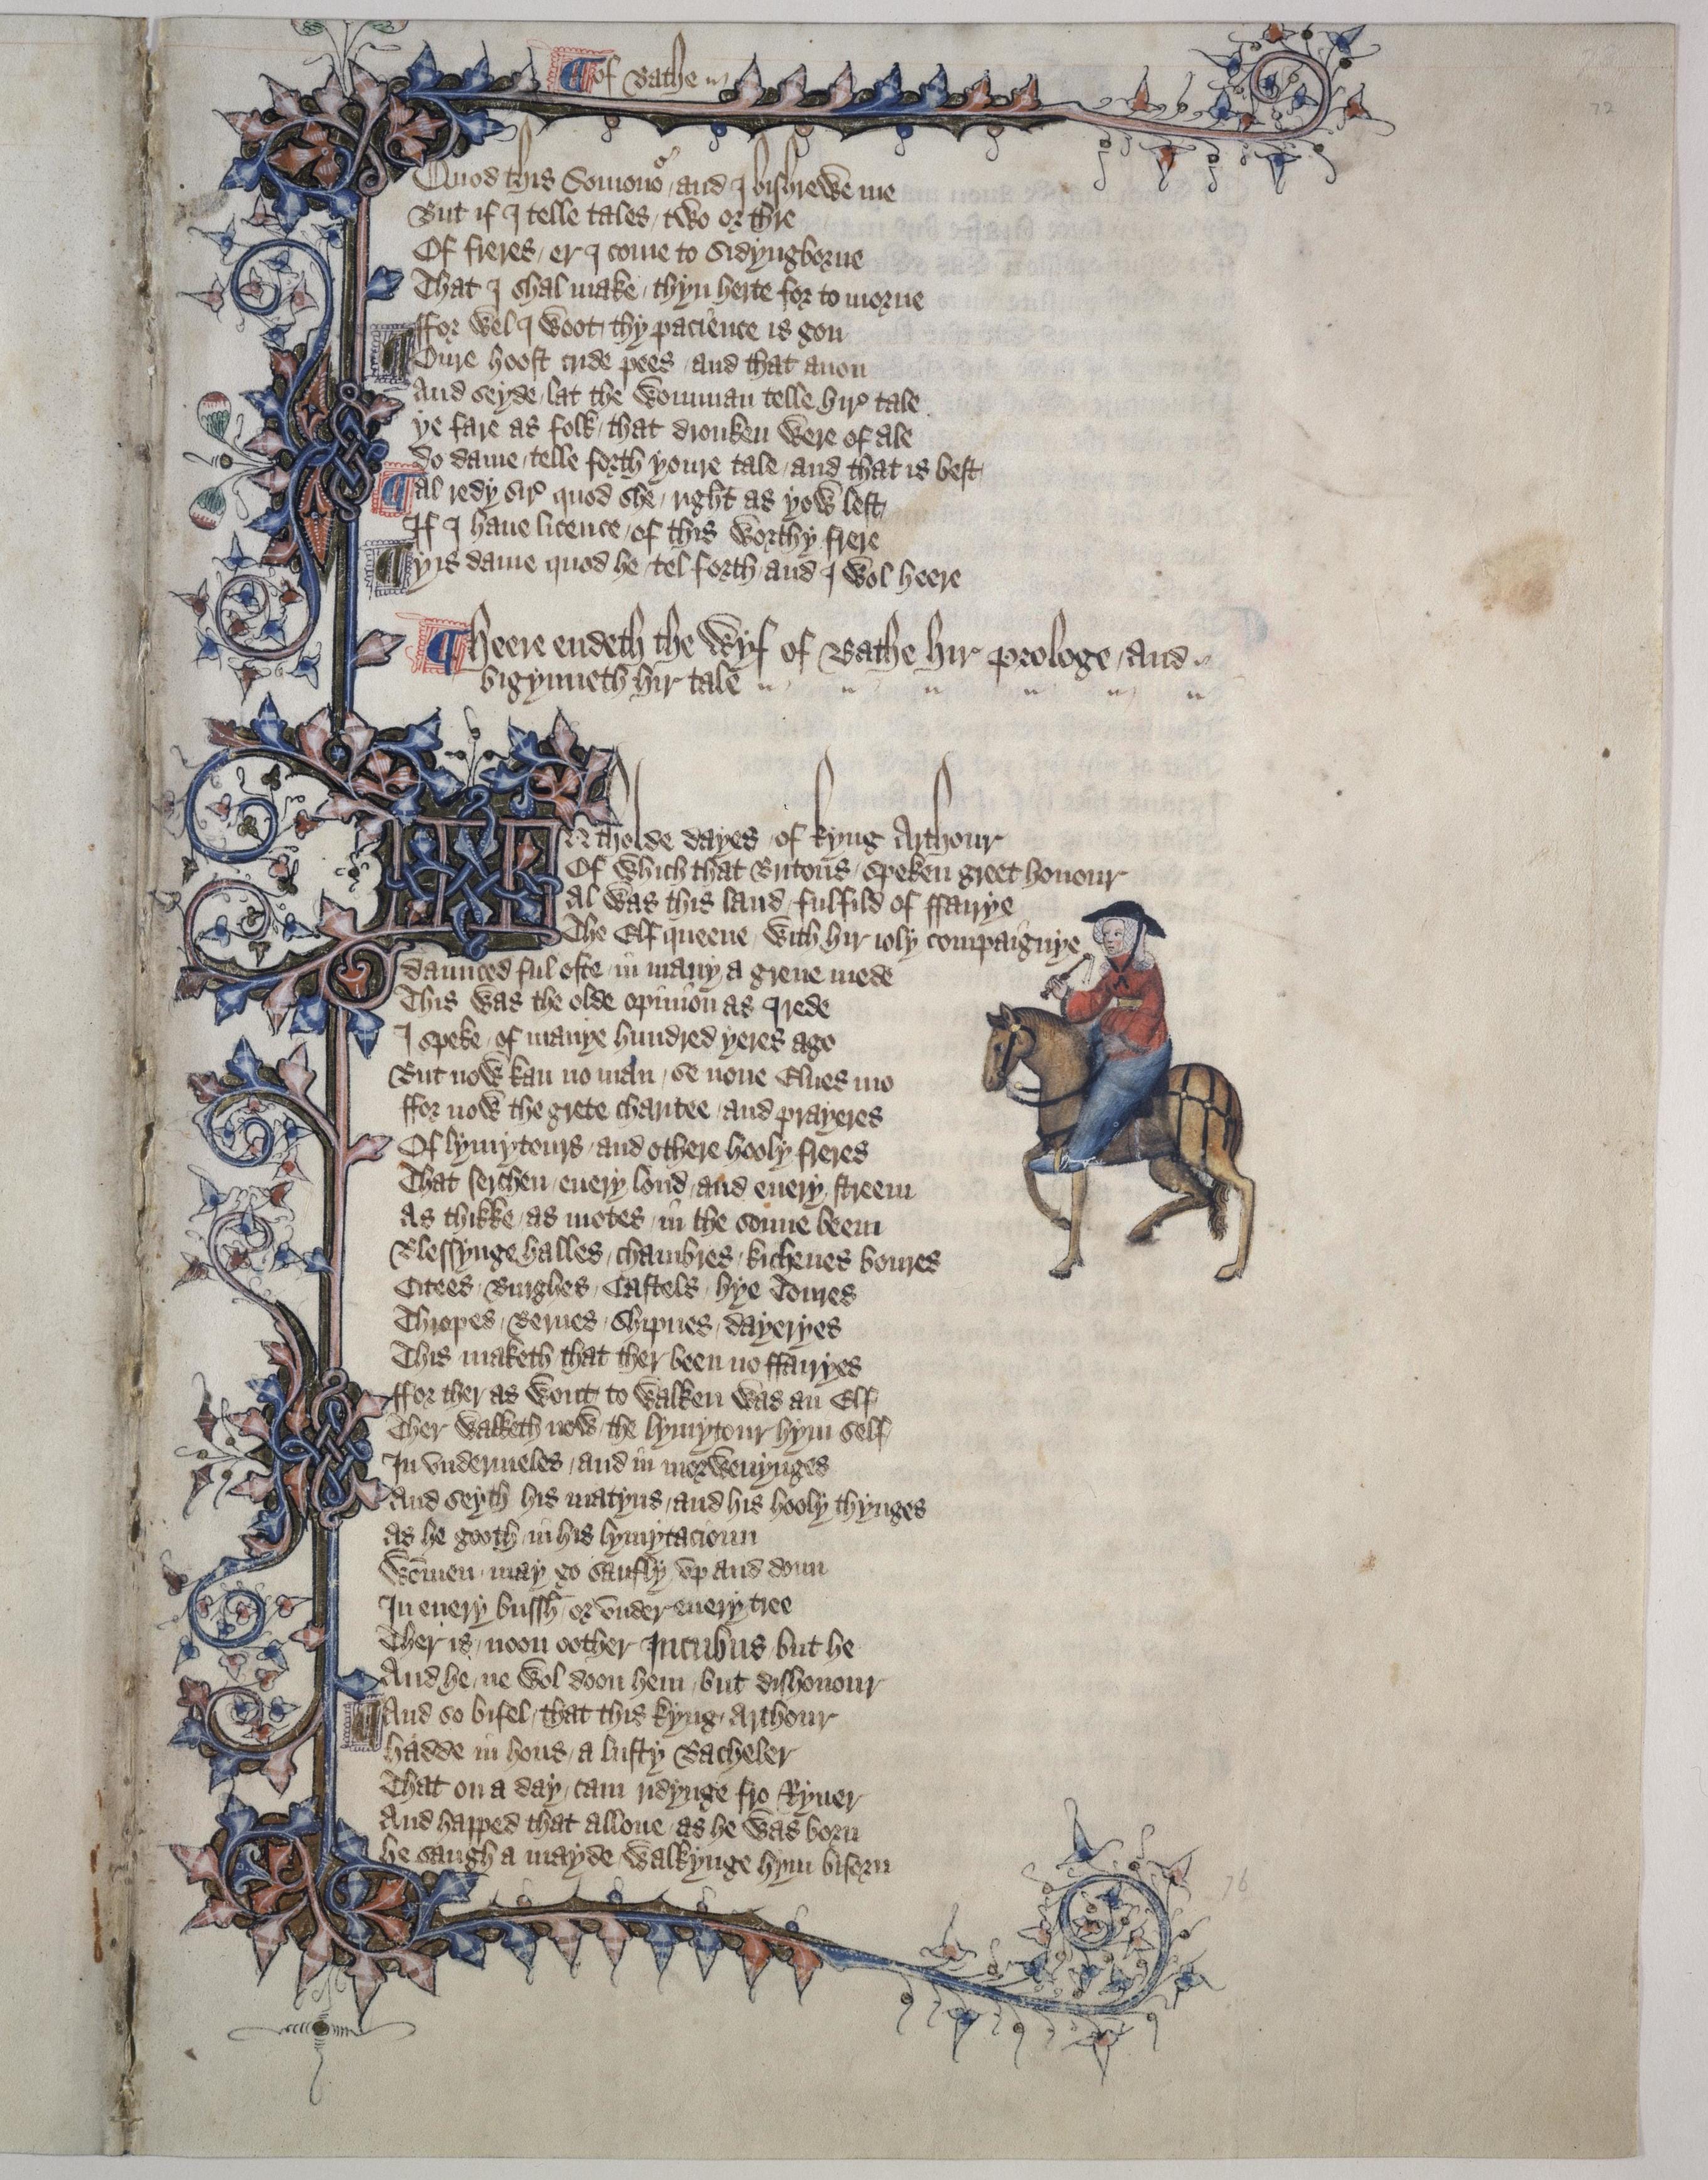 of Bathe
72
Quod this Somonor, and I bishrewe me
But if I telle tales, two or thre
Of freres, er I come to Sidyngborne
That I shal make, thyn herte for to morne
ffor wel I woot, thy pacience is gon
Oure hoost cride pees, and that anon
And seyde, lat the womman telle hire tale
ye fare as folk, that dronken were of ale
do dame, telle forth youre tale, and that is best
Al redy sire quod she, right as yow lest
If I haue licence, of this worthy frere
yis dame quod he, tel forth, and I wol heere
heere endeth the Wyf of Bathe hir prologe, and
bigynneth hir tale
In tholde dayes, of kyng Arthour
Of which that Britons, speken greet honour
Al was this land, fulfild of ffairye
The Elf queene, with hir ioly compaignye
daunced ful ofte, in many a grene mede
This was the olde opinion as I rede
I speke, of manye hundred yeres ago
But now kan no man, se none Elues mo
ffor now the grete charitee, and prayeres
Of lymytours, and othere hooly freres
That serchen, euery lond, and euery streem
As thikke, as motes, in the sonne beem
Blessynge halles, chambres, kichenes boures
Citees, Burghes, Castels, hye Toures
Thropes, Bernes, Shipnes, dayeryes
This maketh that ther been no ffairyes
ffor ther as wont, to walken was an Elf
Ther walketh now, the lymytour hym self
In vndermeles, and in morwenynges
And seyth his matyns, and his hooly thynges
As he gooth, in his lymytacioun
Wommen, may go saufly, vp and doun
In euery bussh, or vnder euery tree
Ther is, noon oother Incubus, but he
And he, ne wol doon hem, but dishonour
And so bifel, that this kyng, Arthour
hadde in hous, a lusty Bacheler
That on a day, cam ridynge fro Ryuer
And happed that allone, as he was born
he saugh a mayde, walkynge hym biforn
76